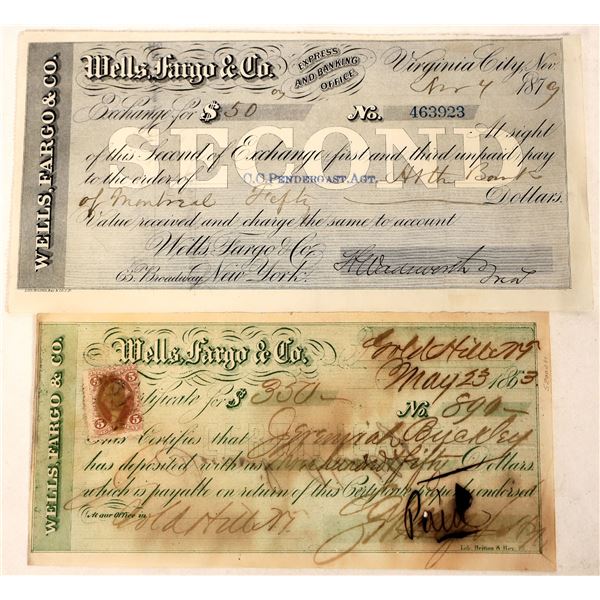 WELLS, FARGO & CO.
Wells, Fargo & Co. EXPRESS AND BANKING OFFICE
Virginia City, Nev.
Nov 4 1879
Exchange for $ 50 No. 463923
SECOND
At sight
of this Second of Exchange, first and third unpaid pay
to the order of C.C. PENDERGAST, AGT. Bank
of Montreal Fifty Dollars.
Value received and charge the same to account
Wells, Fargo & Co.
65 Broadway, New York. Wadsworth
WELLS, FARGO & CO.
Wells, Fargo & Co. Gold Hill NT
May 23 1863
5 5
Certificate for $ 350 No. 890
This Certifies that Jeremiah Buckley
has deposited with us Three hundred & fifty Dollars
which is payable on return of this Certificate properly endorsed
At our Office in Gold Hill NT
Paid
Lith. Britton & Rey